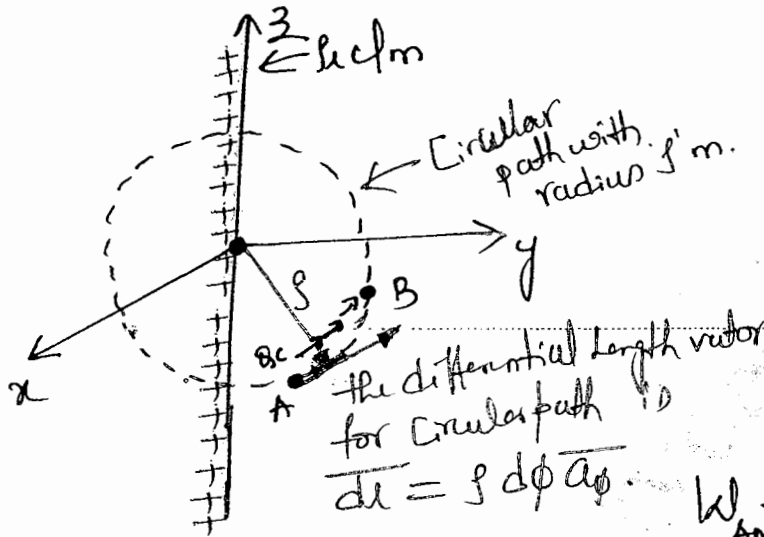 z
ρl c/m
Circular
path with
radius ρ m.
y
ρ
B
x
A
the differential length vector
for Circular path is
dl = ρ dφ aφ.
W